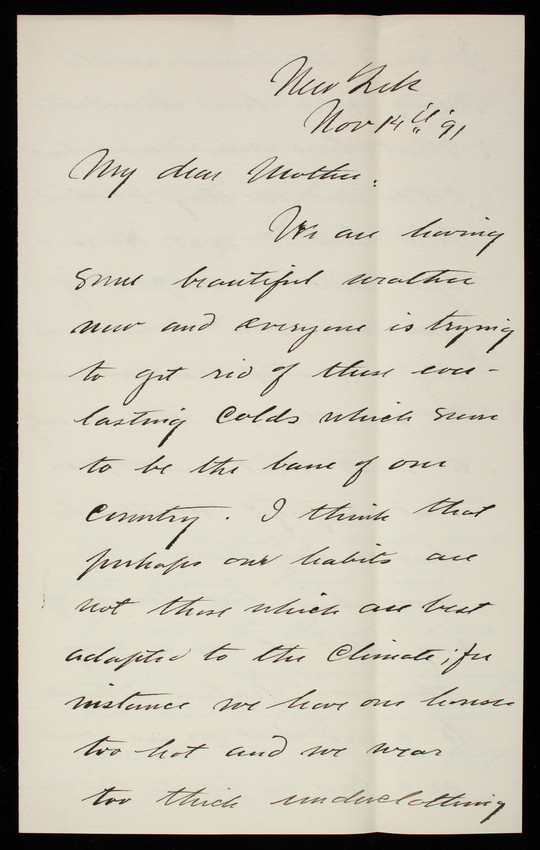 New York
Nov 14th '91
My dear Mother:
We are having
some beautiful weather
now and everyone is trying
to get rid of these ever-
lasting Colds which seem
to be the bane of our
Country. I think that
perhaps our habits are
not those which are best
adapted to the Climate; for
instance we have our houses
too hot and we wear
too thick underclothing